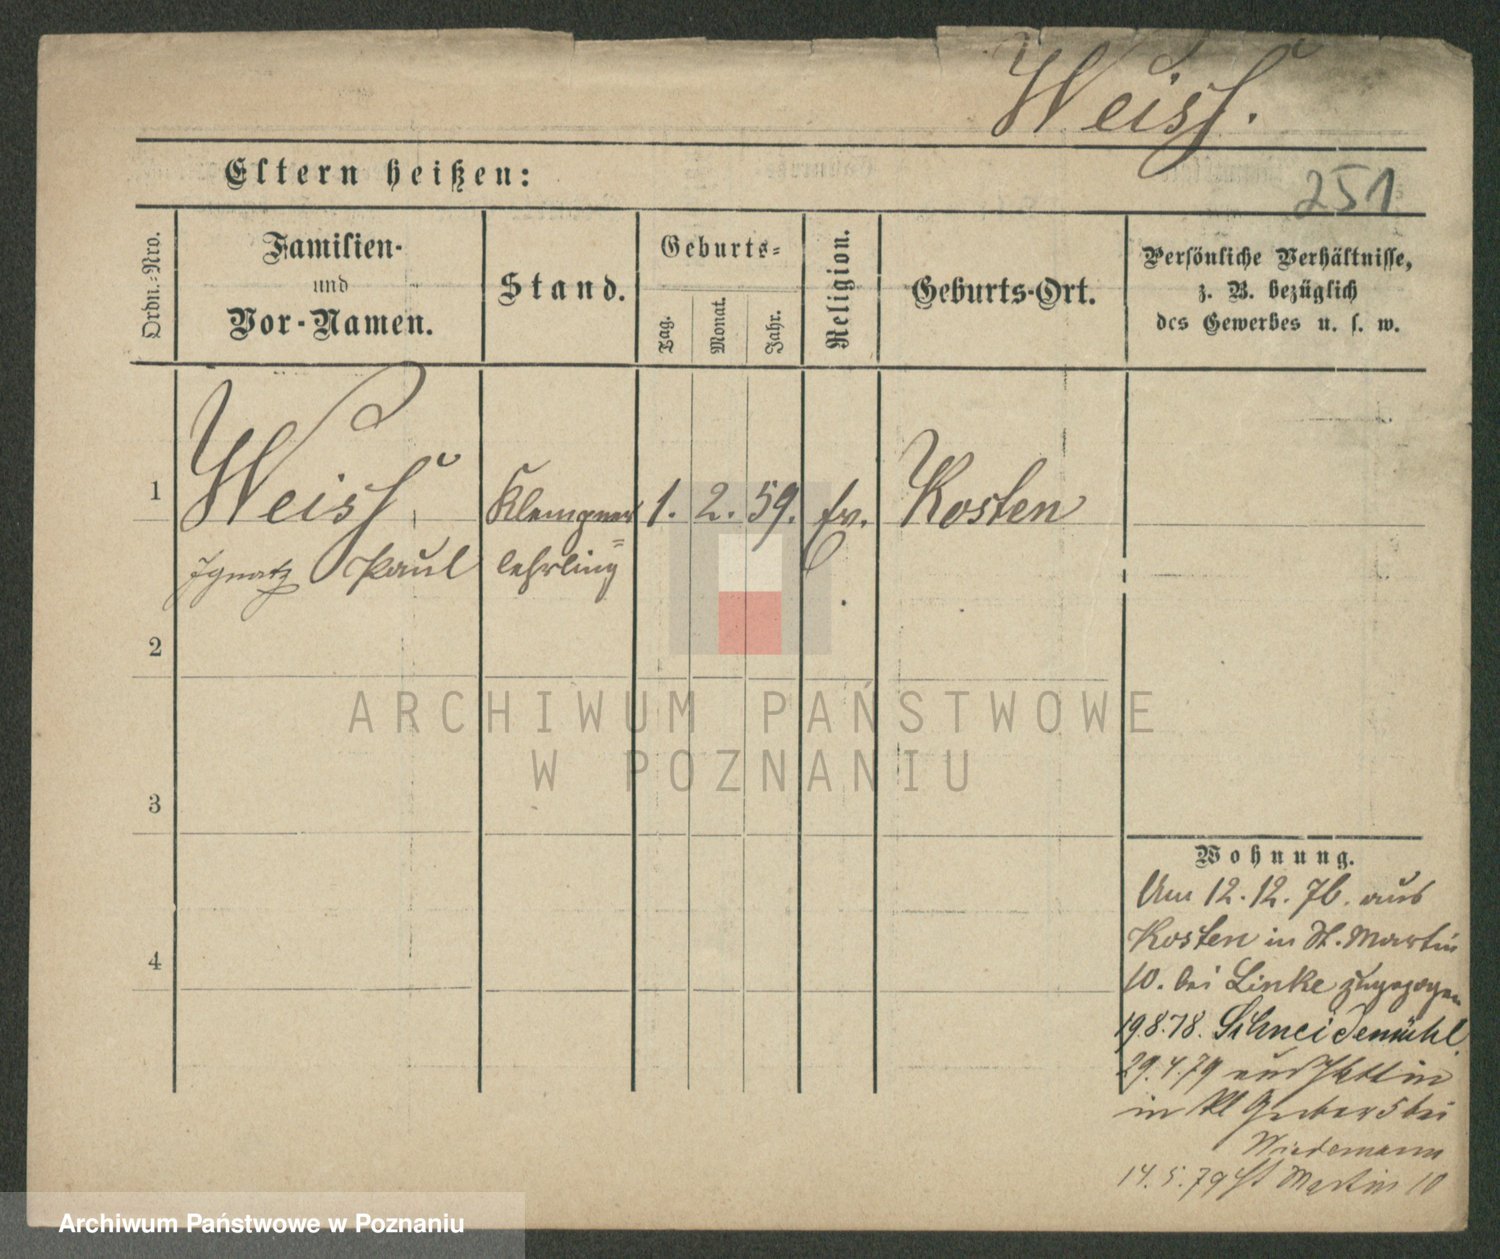 Weiss.
Eltern heißen:
251
Ordn.-Nro.
Familien-
und
Vor-Namen.
Stand.
Geburts-
Tag.
Monat.
Jahr.
Religion.
Geburts-Ort.
Persönliche Verhältnisse,
z. B. bezüglich
des Gewerbes u. s. w.
1
Weiss
Klempner
1. 2. 59. ev. Kosten
Ignatz Paul
lehrling
2
3
4
Wohnung.
Am 12.12.76. aus
Kosten in St. Martin
10. bei Linke zugezogen
19.8.78. Schneidemühl.
29.4.79 aus Stettin
in Kl Gerber 5 bei
Wiedemann
14.5.79 St Martin 10
ARCHIWUM PAŃSTWOWE
W POZNANIU
Archiwum Państwowe w Poznaniu